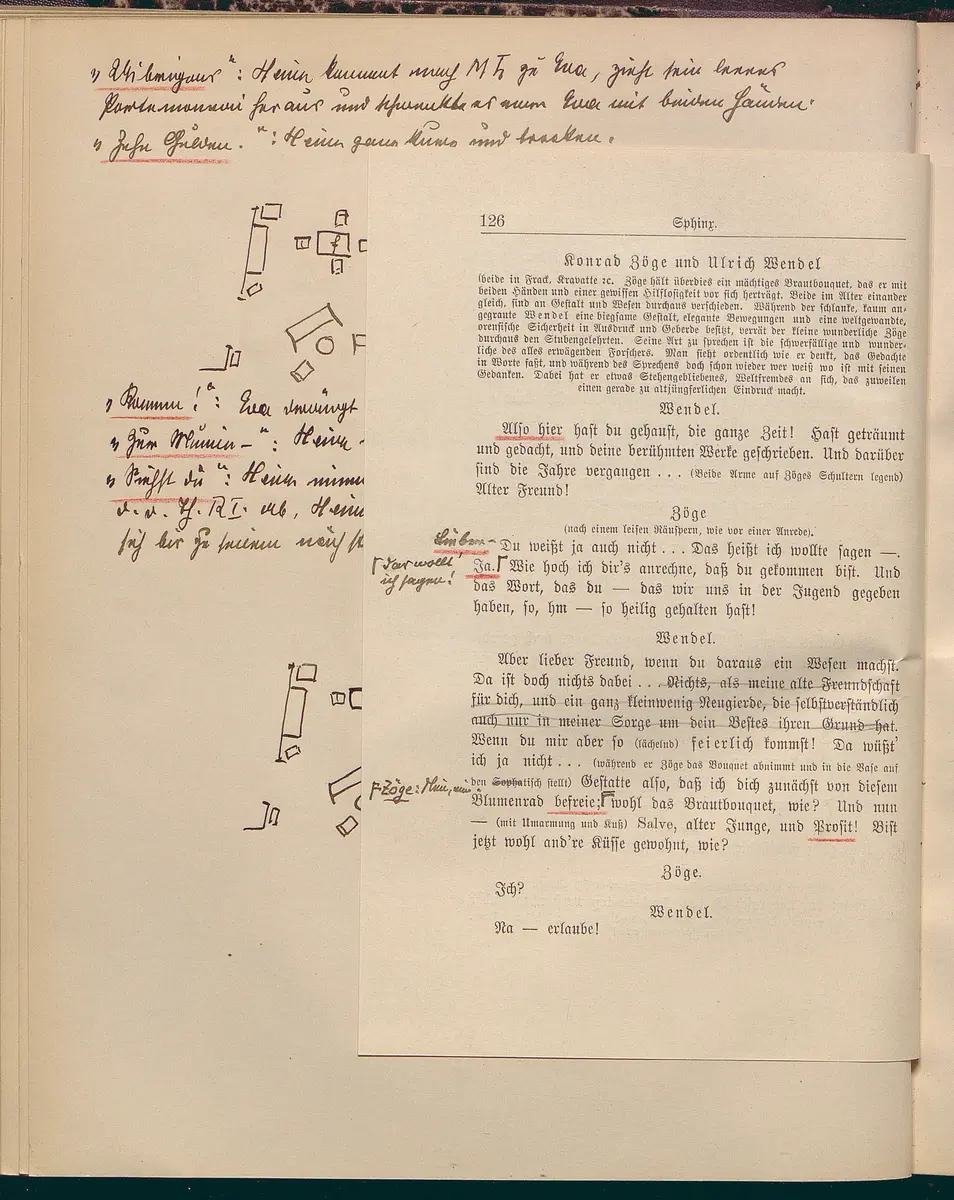 „Übrigens“: Heinz kommt nach M I. zu Eva, zieht sein leeres
Portemonnaie heraus und schwenkt es vor Eva mit beiden Händen.
„Zehn Gulden.“: Heinz ganz kurz und trocken.
„Komm!“: Eva
„Zur Mumie –“: Heinz
„Siehst du“: Heinz nimmt
d. v. Th. R I. ab, Heinz
sich bis zu seinem
126 Sphinx.
Konrad Zöge und Ulrich Wendel
(beide in Frack, Kravatte ꝛc. Zöge hält überdies ein mächtiges Brautbouquet, das er mit
beiden Händen und einer gewissen Hilflosigkeit vor sich herträgt. Beide im Alter einander
gleich, sind an Gestalt und Wesen durchaus verschieden. Während der schlanke, kaum an-
gegraute Wendel eine biegsame Gestalt, elegante Bewegungen und eine weltgewandte,
orensische Sicherheit in Ausdruck und Geberde besitzt, verrät der kleine wunderliche Zöge
durchaus den Stubengelehrten. Seine Art zu sprechen ist die schwerfällige und wunder-
liche des alles erwägenden Forschers. Man sieht ordentlich wie er denkt, das Gedachte
in Worte faßt, und während des Sprechens doch schon wieder wer weiß wo ist mit seinen
Gedanken. Dabei hat er etwas Stehengebliebenes, Weltfremdes an sich, das zuweilen
einen gerade zu altjüngferlichen Eindruck macht.
Wendel.
Also hier hast du gehaust, die ganze Zeit! Hast geträumt
und gedacht, und deine berühmten Werke geschrieben. Und darüber
sind die Jahre vergangen . . . (Beide Arme auf Zöges Schultern legend)
Alter Freund!
Zöge
(nach einem leisen Räuspern, wie vor einer Anrede).
Lieber –
Du weißt ja auch nicht . . . Das heißt ich wollte sagen —.
das wollt'
ich sagen!
Ja. Wie hoch ich dir's anrechne, daß du gekommen bist. Und
das Wort, das du — das wir uns in der Jugend gegeben
haben, so, hm — so heilig gehalten hast!
Wendel.
Aber lieber Freund, wenn du daraus ein Wesen machst.
Da ist doch nichts dabei . . . Nichts, als meine alte Freundschaft
für dich, und ein ganz kleinwenig Neugierde, die selbstverständlich
auch nur in meiner Sorge um dein Bestes ihren Grund hat.
Wenn du mir aber so (lächelnd) feierlich kommst! Da wüßt'
ich ja nicht . . . (während er Zöge das Bouquet abnimmt und in die Vase auf
den Sophatisch stellt) Gestatte also, daß ich dich zunächst von diesem
Zöge:
Blumenrad befreie; wohl das Brautbouquet, wie? Und nun
— (mit Umarmung und Kuß) Salve, alter Junge, und Prosit! Bist
jetzt wohl and're Küsse gewohnt, wie?
Zöge.
Ich?
Wendel.
Na — erlaube!